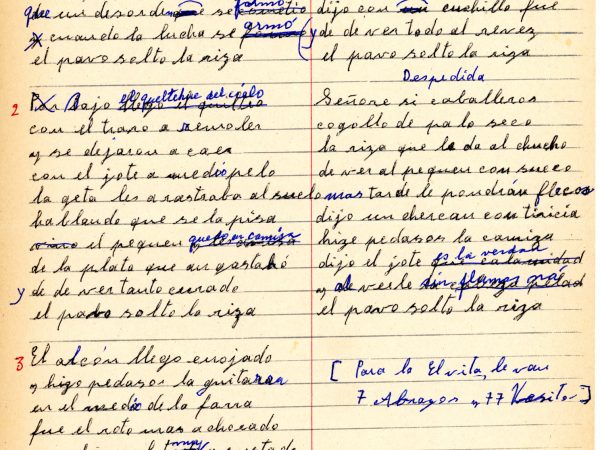 que un desorden se formó
y cuando la lucha se armó
el pavo solto la riza
2 Bajo el queltehue del cielo
con el traro a remoler
y se dejaron caer
con el jote a mediopelo
la geta les arastraba al suelo
hablando que se la pisa
el pequen quedo en camiza
de la plata que an gastado
y de ver tanto curado
el pavo solto la riza
3 El alcón llego enojado
y hizo pedasos la guitarra
en el medio de la farra
fue el roto mas achorado
dijo con un cuchillo fue
y de ver todo al reves
el pavo solto la riza
Despedida
Señore si caballeros
cogollo de palo seco
la riza que le da al chucho
de ver al pequen con sueco
mas tarde le pondrán flecos
dijo un chercan con tiricia
hize pedasos la camiza
dijo el jote es la verdad
y al verle sin plumas ná
el pavo solto la riza
[ Para la Elvita, le van
7 Abrazos y 77 Vesitos ]